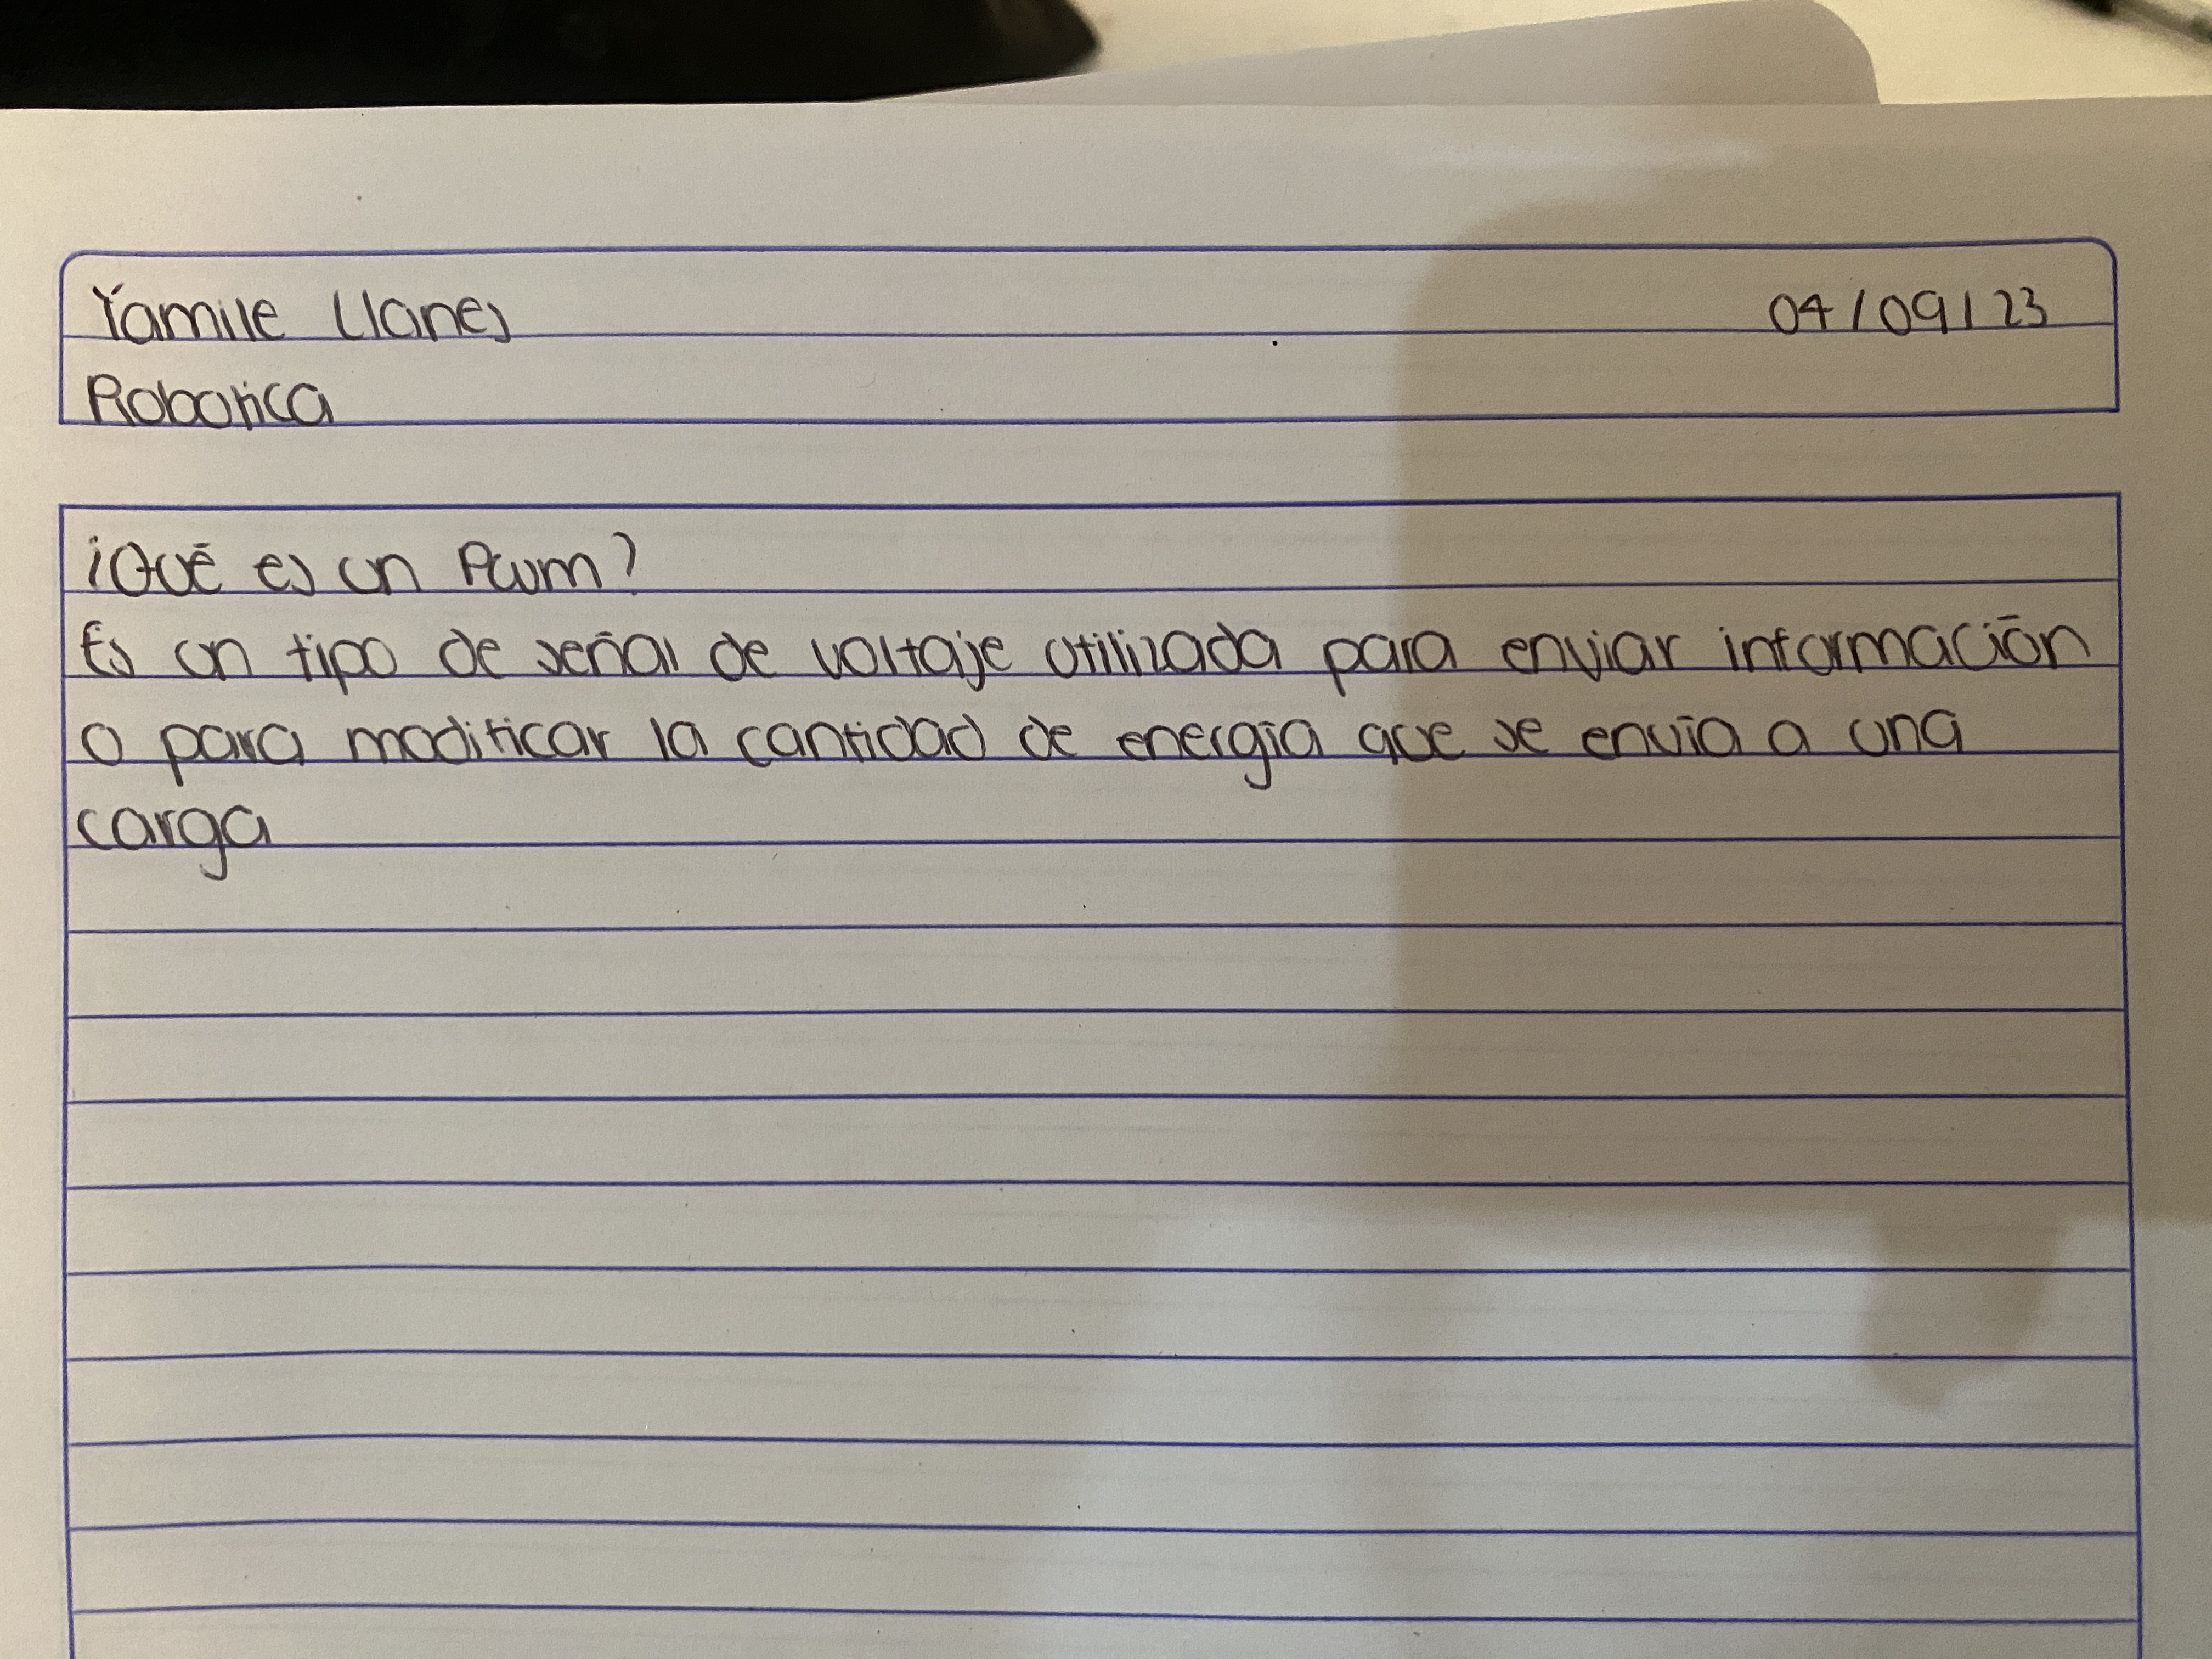 Yamile Llanes 04/09/23
Robotica
¿Qué es un Pwm?
Es un tipo de señal de voltaje utilizada para enviar información
o para modificar la cantidad de energía que se envía a una
carga